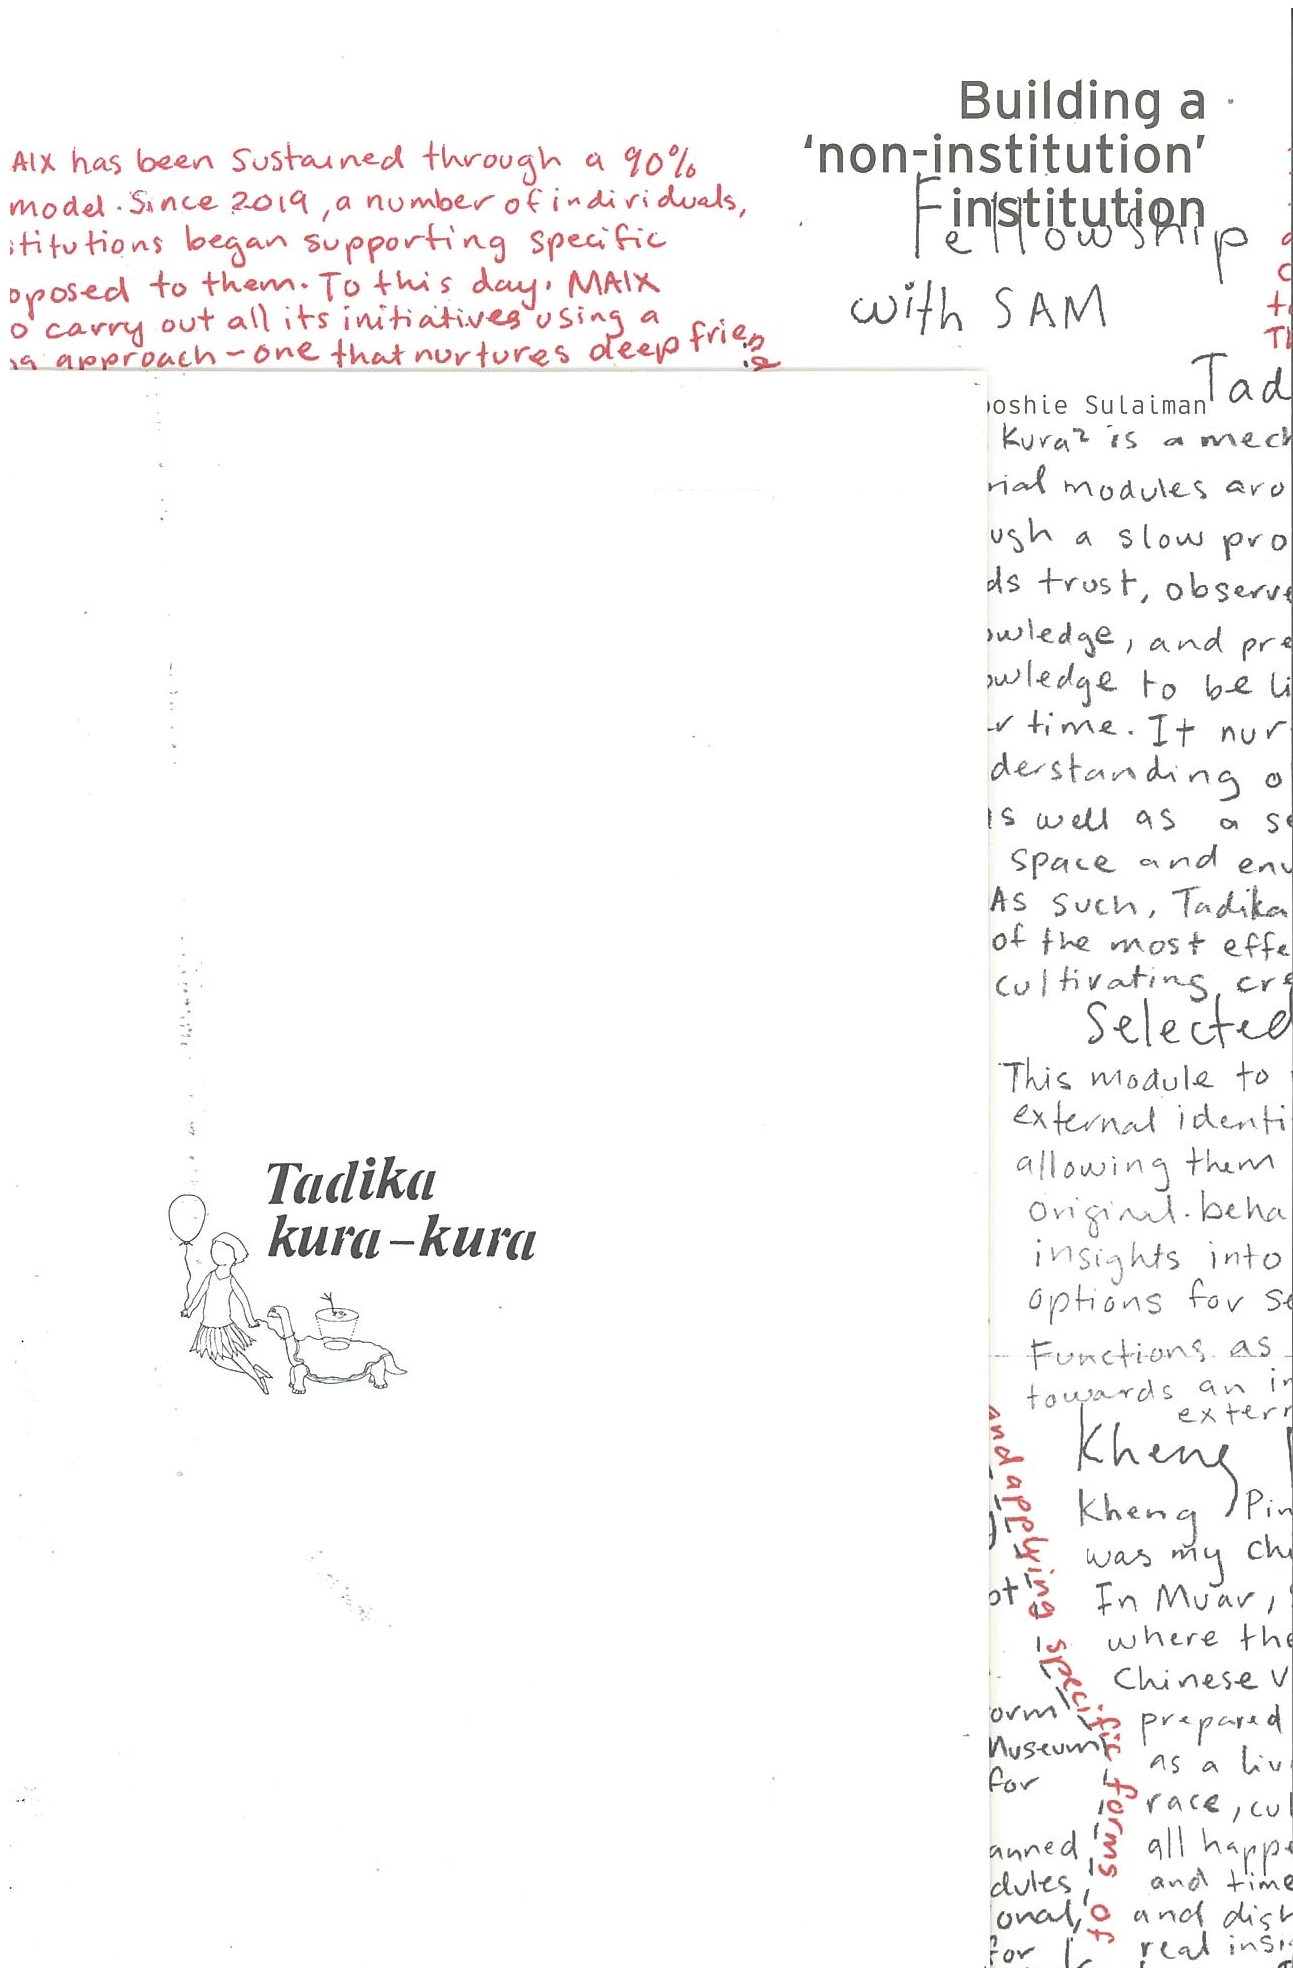 Building a
'non-institution'
institution
Fellowship
with SAM
AIX has been sustained through a 90%
model. Since 2019, a number of individuals,
stitutions began supporting specific
oposed to them. To this day, MAIX
o carry out all its initiatives using a
ng approach – one that nurtures deep friend
ooshie Sulaiman
Tad
Kura² is a mech
rial modules aro
ugh a slow pro
ds trust, observe
owledge, and pre
owledge to be li
r time. It nur
derstanding o
as well as a se
space and env
As such, Tadika
of the most effe
cultivating, cre
Selected
This module to
external identi
allowing them
original. beha
insights into
options for se
Functions as
towards an in
extern
Kheng
Kheng Pin
was my chi
In Muar,
where the
Chinese V
prepared
as a liv
race, cul
all happe
and time
and dish
real insi
and applying specific forms of
ot
orm
Museum
for
anned
dules
onal,
for
Tadika
kura–kura